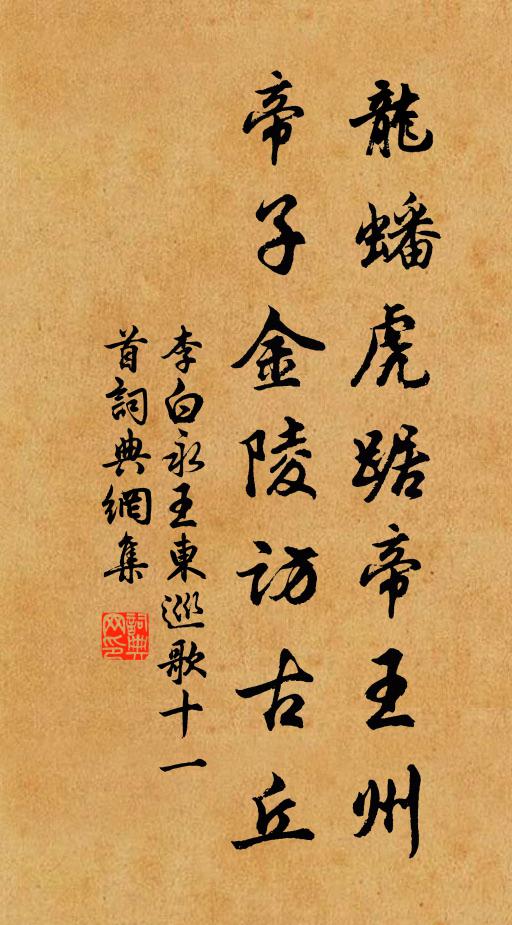 龍蟠虎踞帝王州
帝子金陵訪古丘
李白永王東巡歌十一
首詞典網集
詞典网印